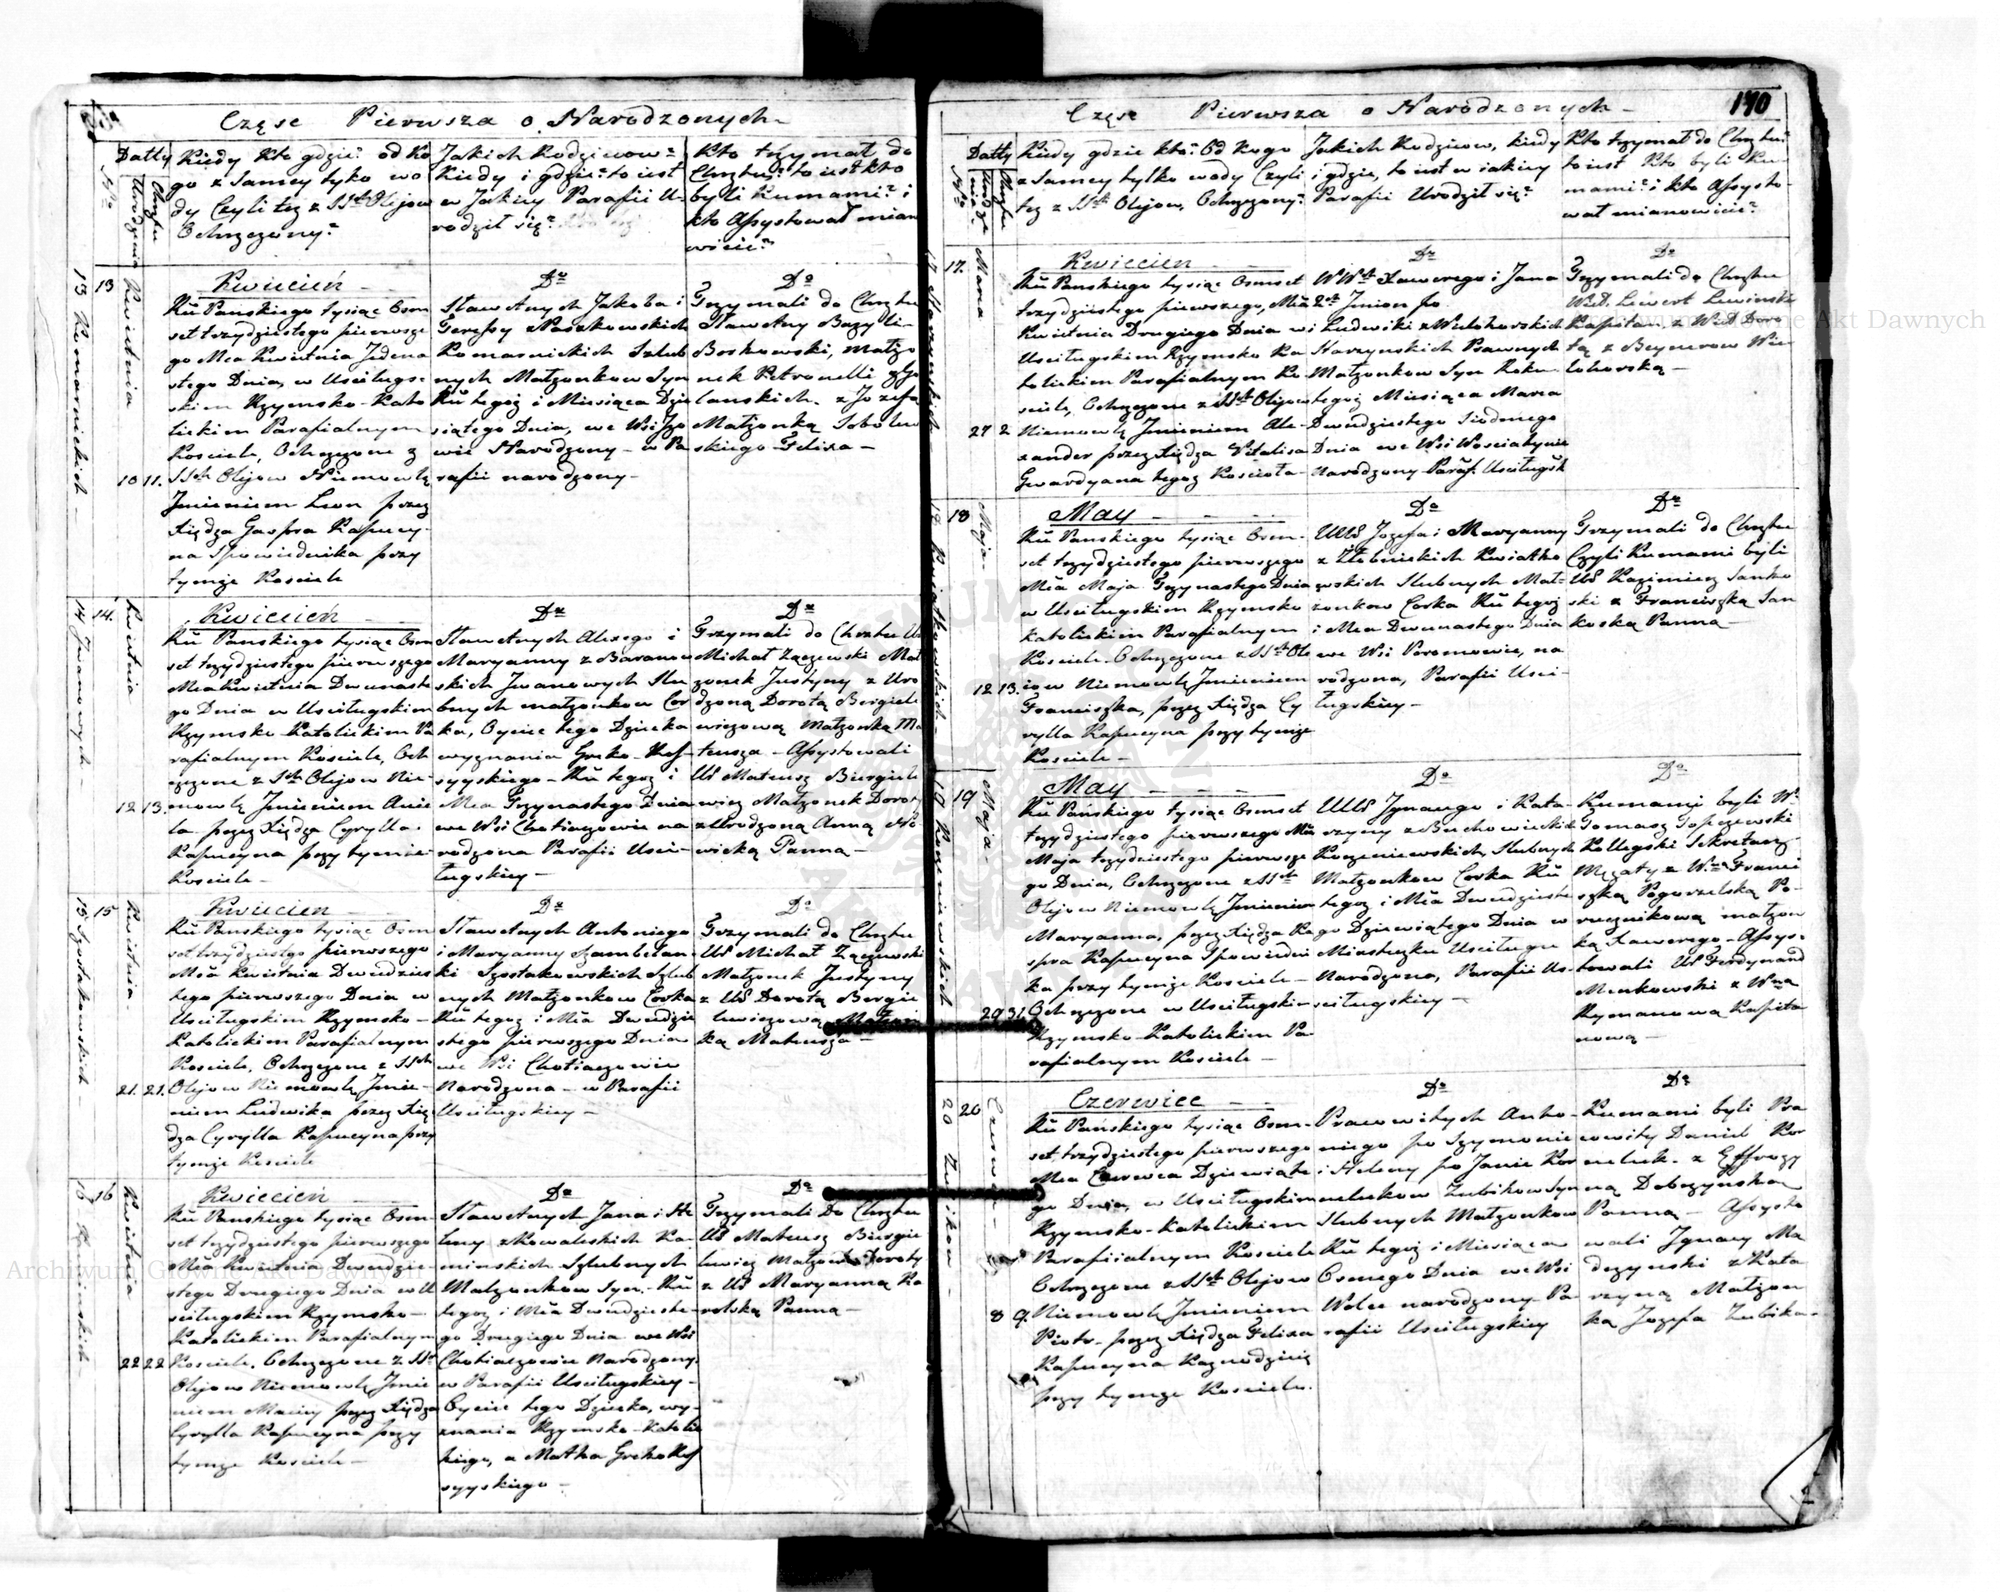 Częsc Pierwsza o Narodzonych
Datty
Kiedy kto gdzie? od ko
go z samey tylko wo
dy Czyli też z SStch Olejow
Ochrzczony?
Jakich Rodzicow?
Kiedy i gdzie? to iest
w Jakiey Parafii U-
rodził się?
Kto trzymał do
Chrztu? to iest kto
byli Kumami? i
kto Assystował miano
wicie?
13 Komarnickich
13
Kwietnia
10 11.
Kwiecień
Ru Panskiego tysiąc Osm
set trzydziestego pierwsze
go Mca Kwietnia Jedena
stego Dnia, w Usciługs-
skim Rzymsko-Kato
lickim Parafialnym
Kosciele, Ochrzczone z
SSch Olejow Niemowlę
Jmieniem Leon przez
Xiędza Gaspra Kapucy-
na Spowiednika przy
tymże Kosciele
Do
Sławetnych Jakoba i
Teressy z Paszkowskich
Komarnickich Szlub
nych Małżonkow Syn
Ru tegoż i Miesiąca Dzie
siątego Dnia, we Wsi
wie Narodzony - w Pa
rafii narodzony-
Do
Trzymali do Chrztu
Sławetny Bazyli-
Boskowski, małżo
nek Petronelli z Go
lanskich. z Jozefą
Małżonką Sobolew
skiego Felixa-
14 Jwanowych
14.
Kwietnia
12 13.
Kwiecień
Ru Panskiego tysiąc Osm
set trzydziestego pierwszego
Mca Kwietnia Dwunaste
go Dnia w Usciługskim
Rzymsko Katolickim Pa
rafialnym Kosciele, Och
rzczone z Stch Olejow Nie-
mowlę Jmieniem Anie
la przez Xiędza Cyrylla
Kapucyna przy tymże
Kosciele-
Do
Sławetnych Alexego i
Maryanny z Baranow
skich Jwanowych Slu
bnych małżonkow Cor
ka, Oyciec tego Dziecka
wyznania Greko-Ros-
syyskiego- Ru tegoż i
Mca Trzynastego Dnia
we Wsi Chotiaczowie na
rodzona Parafii Usci-
ługskiey-
Do
Trzymali do Chrztu U
Michał Zączewski Mał
żonek Justyny z Uro
dzoną Dorotą Bergiele
wiczową Małżonką Ma
teusza - Assystowali
UU Mateusz Biergiele
wicz Małżonek Doroty
z Urodzoną Anną
wicką Panną-
15 Szostakowskich
15
Kwietnia
21. 21.
Kwiecien
Ru Panskiego tysiąc Osm
set trzydziestego pierwszego
Mca Kwietnia Dwudzies
tego pierwszego Dnia w
Usciługskim Rzymsko-
Katolickim Parafialnym
Kosciele, Ochrzczone z SSch
Olejow Niemowlę Jmie-
niem Ludwika przez Xię
dza Cyrylla Kapucyna przy
tymże Kosciele
Do
Sławetnych Antoniego
i Maryanny Szambelan-
ki Szostakowskich Szlub
nych Małżonkow Corka
Ru tegoż i Mca Dwudzie
stego pierwszego Dnia
we Wsi Chotiaczowie
Narodzona- w Parafii
Usciługskiey-
Do
Trzymali do Chrztu
UU Michał Zączewski
Małżonek Justyny
z UU Dorotą Bergie
lewiczową Małżon
ką Mateusza-
16 Kaminskich
16
Kwietnia
22 22
Kwiecień
Ru Panskiego tysiąc Osm-
set trzydziestego pierwszego
Mca Kwietnia Dwudzie-
stego Drugiego Dnia w U
sciługskim Rzymsko-
Katolickim Parafialnym
Kosciele, Ochrzczone z SSch
Olejow Niemowlę Jmie
niem Maciey przez Xiędza
Cyrylla Kapucyna przy
tymże Kosciele-
Do
Sławetnych Jana i He
leny z Kowalskich Ka-
minskich Szlubnych
Małżonkow Syn- Ru
tegoż i Mca Dwudzieste-
go Drugiego Dnia we Wsi
Chotiaczowie Narodzony.
w Parafii Usciługskiey-
Oyciec tego Dziecka, wy-
znania Rzymsko-Katolic
kiego, a Matka Greko Ros
syyskiego-
Do
Trzymali Do Chrztu
UU Mateusz Biergie
lewicz Małżonek Doroty
z UU Maryanną Ka
rolską Panną-
Częsc Pierwsza o Narodzonych-
170
Datty
Kiedy gdzie kto? Od kogo
z samey tylko wody Czyli
też z SStch Olejow, Ochrzczony?
Jakich Rodzicow, kiedy
i gdzie, to iest w iakiey
Parafii Urodził się?
Kto trzymał do Chrztu?
to iest kto byli Ku-
mami? i kto Assysto-
wał mianowicie?
17 Starzynskich
17.
Marca
27 2
Kwiecien
Ru Panskiego tysiąc Osmset
trzydziestego pierwszego, Mca
Kwietnia Drugiego Dnia w
Usciługskim Rzymsko Ka
tolickim Parafialnym Ko
sciele, Ochrzczone z SStch Olejow
Niemowlę Jmieniem Ale-
xander przez Xiędza Vitalisa
Gwardyana tegoż Koscioła-
Do
WWch Xawerego i Jana
2ch Jmion
Ludwiki z Wielohorskich
Starzynskich Prawnych
Małżonkow Syn Roku
tegoż Miesiąca Marca
Dwudziestego Siodmego
Dnia we Wsi Wosciatynie
narodzony Paraf. Usciługsk
Do
Trzymali do Chrztu
Wiel. Lewert Lewinski
Kapitan z Wiel Doro
tą z Beynerow Wie-
lohorską-
18 Kwiatkowskich
18
Maja
12 13.
May
Ru Panskiego tysiąc Osm-
set trzydziestego pierwszego
Mca Maja Trzynastego Dnia
w Usciługskim Rzymsko
katolickim Parafialnym
Kosciele. Ochrzczone z SStch Ole
iow Niemowlę Jmieniem
Franciszka, przez Xiędza Cy
rylla Kapucyna przy tymże
Kosciele-
Do
UUU Jozefa i Maryanny
z Złobnickich Kwiatko
wskich Slubnych Mał-
żonkow Corka Ru tegoż
i Mca Dwunastego Dnia
we Wsi Poromowie, na
rodzona, Parafii Usci-
ługskiey-
Do
Trzymali do Chrztu
Czyli Kumami byli
UU Kazimierz Janko
ski z Franciszką Jan
koską Panną-
19 Korzeniewskich
19
Maja
29 31.
May
Ru Pańskiego tysiąc Osmset
trzydziestego pierwszego Mca
Maja trzydziestego pierwsze
go Dnia, Ochrzczone z SStch
Olejow Niemowlę Jmieniem
Maryanna, przez Xiędza Ga
spra Kapucyna Spowiedni
ka przy tymże Kosciele-
Ochrzczone w Usciługskim
Rzymsko-Katolickim Pa
rafialnym Kosciele-
Do
UUU Jgnacego i Kata
rzyny z Buchowieckich
Korzeniewskich, Slubnych
Małżonkow Corka Ru
tegoż i Mca Dwudzieste
go Dziewiątego Dnia w
Miasteczku Usciługu
Narodzona, Parafii Us-
sciługskiey-
Do
Kumami byli W.
Tomasz Topczewski
Kollegski Sekretarz
Mężaty z Wną Franci
szką Pogorzelską Po-
rucznikową małżon
ką Xawerego- Assys-
towali UU Ferdynand
Menkowski z Wną
Rymanową Kapita
nową-
20 Zubikow
20
Czerwca
8 9.
Czerwiec
Ru Pańskiego tysiąc Osm-
set trzydziestego pierwszego
Mca Czerwca Dziewiąte
go Dnia, w Usciługskim
Rzymsko-Katolickim
Parafiialnym Kosciele
Ochrzczone z SStch Olejow
Niemowlę Jmieniem
Piotr- przez Xiędza Felixa
Kapucyna Kaznodzieię
przy tymże Kosciele.
Do
Pracowitych Anto-
niego po Szymonie
i Heleny po Janie Kor
neluków Zubikow Syn
Slubnych Małżonkow
Ru tegoż i Miesiąca
Osmego Dnia we Wsi
Wolce narodzony Pa-
rafii Usciługskiey
Do
Kumami byli Pra
cowity Daniel Kor
neluk. z Effrozy
ną Dobczynską
Panną- Assysto
wali Jgnacy Ma
dczynski z Kata
rzyną Małżon
ką Jozefa Zubika-
Archiwum Główne Akt Dawnych